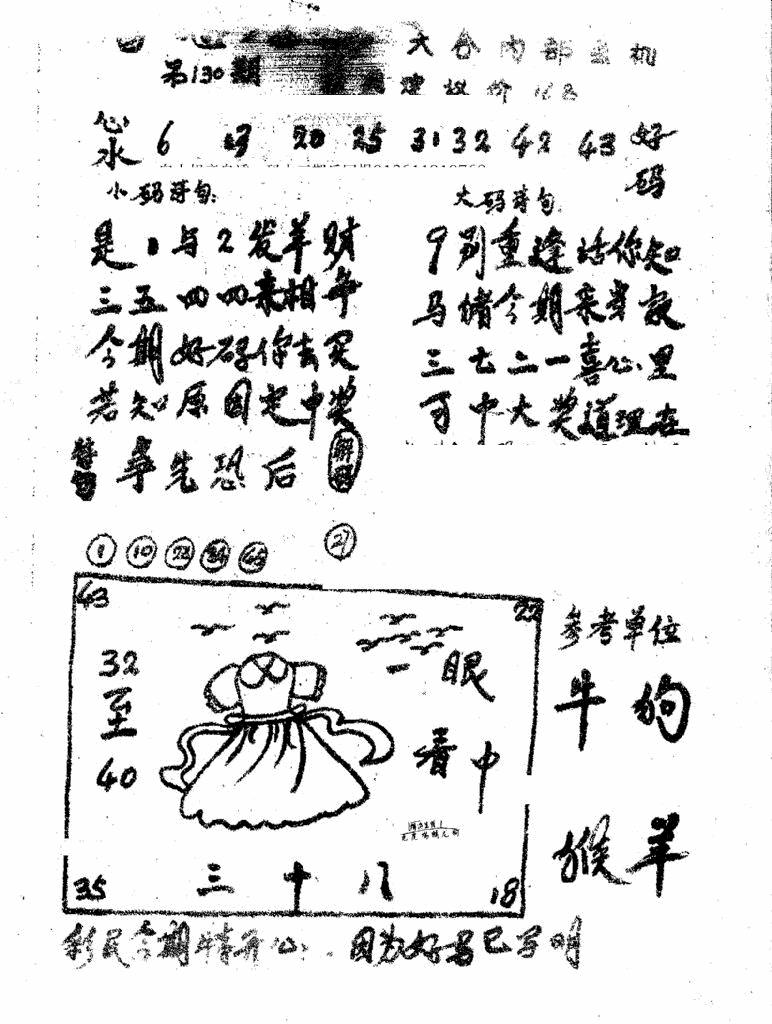 第130期
六合内部玄机
建议价168
心水 6 13 20 25 31 32 42 43 好码
小码诗句:
是1与2发羊财
三五四四来相争
今期好码你去买
若知原因定中奖
大码诗句:
9别重逢话你知
马猪今期来
三七二一喜心里
可中大奖道理在
特句 争先恐后 解码
1 10 22 34 45 27
43
22
32至40
眼看中
三十八
35
18
参考单位
牛 狗
猴 羊
彩民今期情开心.因为好马已写明